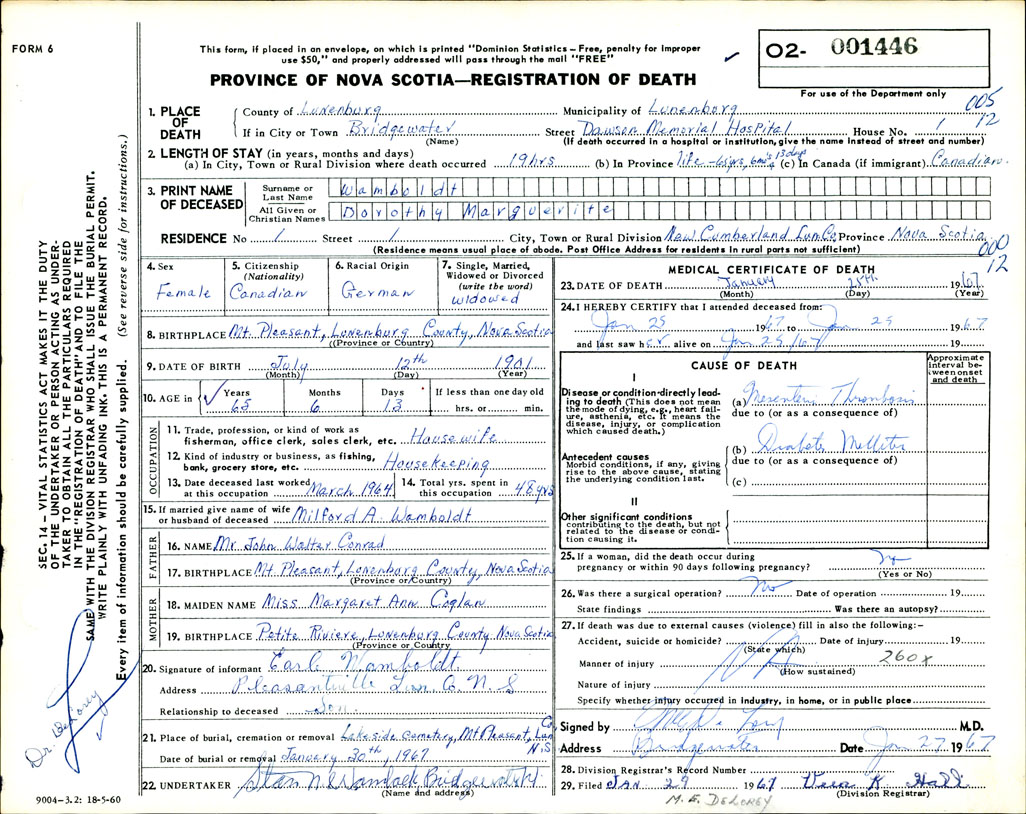 FORM 6
This form, if placed in an envelope, on which is printed "Dominion Statistics – Free, penalty for improper
use $50," and properly addressed will pass through the mail "FREE"
PROVINCE OF NOVA SCOTIA—REGISTRATION OF DEATH
O2- 001446
For use of the Department only
005
12
1. PLACE OF DEATH
County of Lunenburg Municipality of Lunenburg
If in City or Town Bridgewater Street Dawson Memorial Hospital House No. /
(Name) (If death occurred in a hospital or institution, give the name instead of street and number)
2. LENGTH OF STAY (in years, months and days)
(a) In City, Town or Rural Division where death occurred 19hrs (b) In Province life - 65yrs, 6mo's 13 days (c) In Canada (if immigrant) Canadian.
3. PRINT NAME OF DECEASED
Surname or Last Name Wamboldt
All Given or Christian Names Dorothy Marguerite
RESIDENCE No / Street / City, Town or Rural Division New Cumberland Lun Co. Province Nova Scotia
(Residence means usual place of abode. Post Office Address for residents in rural parts not sufficient)
000
12
4. Sex Female
5. Citizenship (Nationality) Canadian
6. Racial Origin German
7. Single, Married, Widowed or Divorced (write the word) widowed
8. BIRTHPLACE Mt. Pleasant, Lunenburg County, Nova Scotia
(Province or Country)
9. DATE OF BIRTH July 12th 1901
(Month) (Day) (Year)
10. AGE in Years 65 Months 6 Days 13 If less than one day old hrs. or min.
OCCUPATION
11. Trade, profession, or kind of work as
fisherman, office clerk, sales clerk, etc. Housewife
12. Kind of industry or business, as fishing,
bank, grocery store, etc. Housekeeping
13. Date deceased last worked at this occupation March 1964 14. Total yrs. spent in this occupation 48 yrs
15. If married give name of wife
or husband of deceased Milford A. Wamboldt
FATHER
16. NAME Mr John Walter Conrad
17. BIRTHPLACE Mt. Pleasant, Lunenburg County, Nova Scotia
(Province or Country)
MOTHER
18. MAIDEN NAME Miss Margaret Ann Coglan
19. BIRTHPLACE Petite Riviere, Lunenburg County Nova Scotia
(Province or Country)
20. Signature of informant Earl Wamboldt
Address Pleasantville Lun. Co. N.S
Relationship to deceased Son
21. Place of burial, cremation or removal Lakeside Cemetery, Mt Pleasant, Lun Co, N.S
Date of burial or removal January 30th, 1967
22. UNDERTAKER
(Name and address)
9004-3.2: 18-5-60
MEDICAL CERTIFICATE OF DEATH
23. DATE OF DEATH January 25th. 1967
(Month) (Day) (Year)
24. I HEREBY CERTIFY that I attended deceased from:
Jan 25 1967 to Jan 25 1967
and last saw her alive on Jan 25/67 19
CAUSE OF DEATH
Approximate interval between onset and death
I
Disease or condition directly leading to death (This does not mean the mode of dying, e.g., heart failure, asthenia, etc. It means the disease, injury, or complication which caused death.)
(a) Mesenteric Thrombosis
due to (or as a consequence of)
Antecedent causes
Morbid conditions, if any, giving rise to the above cause, stating the underlying condition last.
(b) Diabetes Mellitus
due to (or as a consequence of)
(c)
II
Other significant conditions
contributing to the death, but not related to the disease or condition causing it.
25. If a woman, did the death occur during
pregnancy or within 90 days following pregnancy? No
(Yes or No)
26. Was there a surgical operation? No Date of operation 19
State findings Was there an autopsy?
27. If death was due to external causes (violence) fill in also the following:–
Accident, suicide or homicide? Date of injury 19
(State which)
260x
Manner of injury
(How sustained)
Nature of injury
Specify whether injury occurred in industry, in home, or in public place
Signed by M.D.
Address Bridgewater Date Jan 27 1967
28. Division Registrar's Record Number
29. Filed JAN 29 1967 Vera K Hall
(Division Registrar)
M. E. DELOREY
SEC. 14 – VITAL STATISTICS ACT MAKES IT THE DUTY
OF THE UNDERTAKER OR PERSON ACTING AS UNDER-
TAKER TO OBTAIN ALL THE PARTICULARS REQUIRED
IN THE "REGISTRATION OF DEATH" AND TO FILE THE
SAME WITH THE DIVISION REGISTRAR WHO SHALL ISSUE THE BURIAL PERMIT.
WRITE PLAINLY WITH UNFADING INK. THIS IS A PERMANENT RECORD.
Every item of information should be carefully supplied. (See reverse side for instructions.)
Dr DeLorey